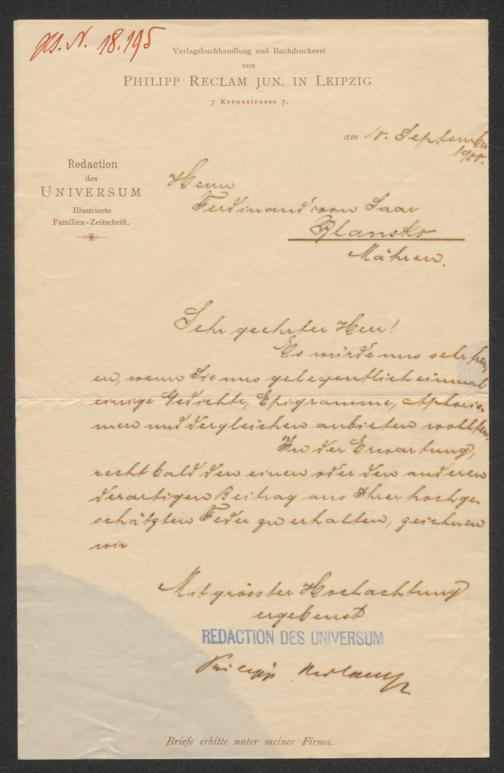 18.195
Verlagsbuchhandlung und Buchdruckerei
von
PHILIPP RECLAM JUN. IN LEIPZIG
7 Kreuzstrasse 7.
am 10. September
1900.
Redaction
des
UNIVERSUM
Illustrierte
Familien-Zeitschrift.
Herrn
Ferdinand von Saar
Blansko
Mähren.
Sehr geehrter Herr!
Es würde uns sehr freu
en, wenn Sie uns gelegentlich einmal
einige Gedichte, Epigramme, Aphoris-
men und dergleichen anbieten wollten.
In der Erwartung,
recht bald den einen oder den anderen
derartigen Beitrag aus Ihrer hochge-
schätzten Feder zu erhalten, zeichnen
wir
Mit grösster Hochachtung
ergebenst
REDACTION DES UNIVERSUM
Philipp Reclam jr
Briefe erbitte unter meiner Firma.